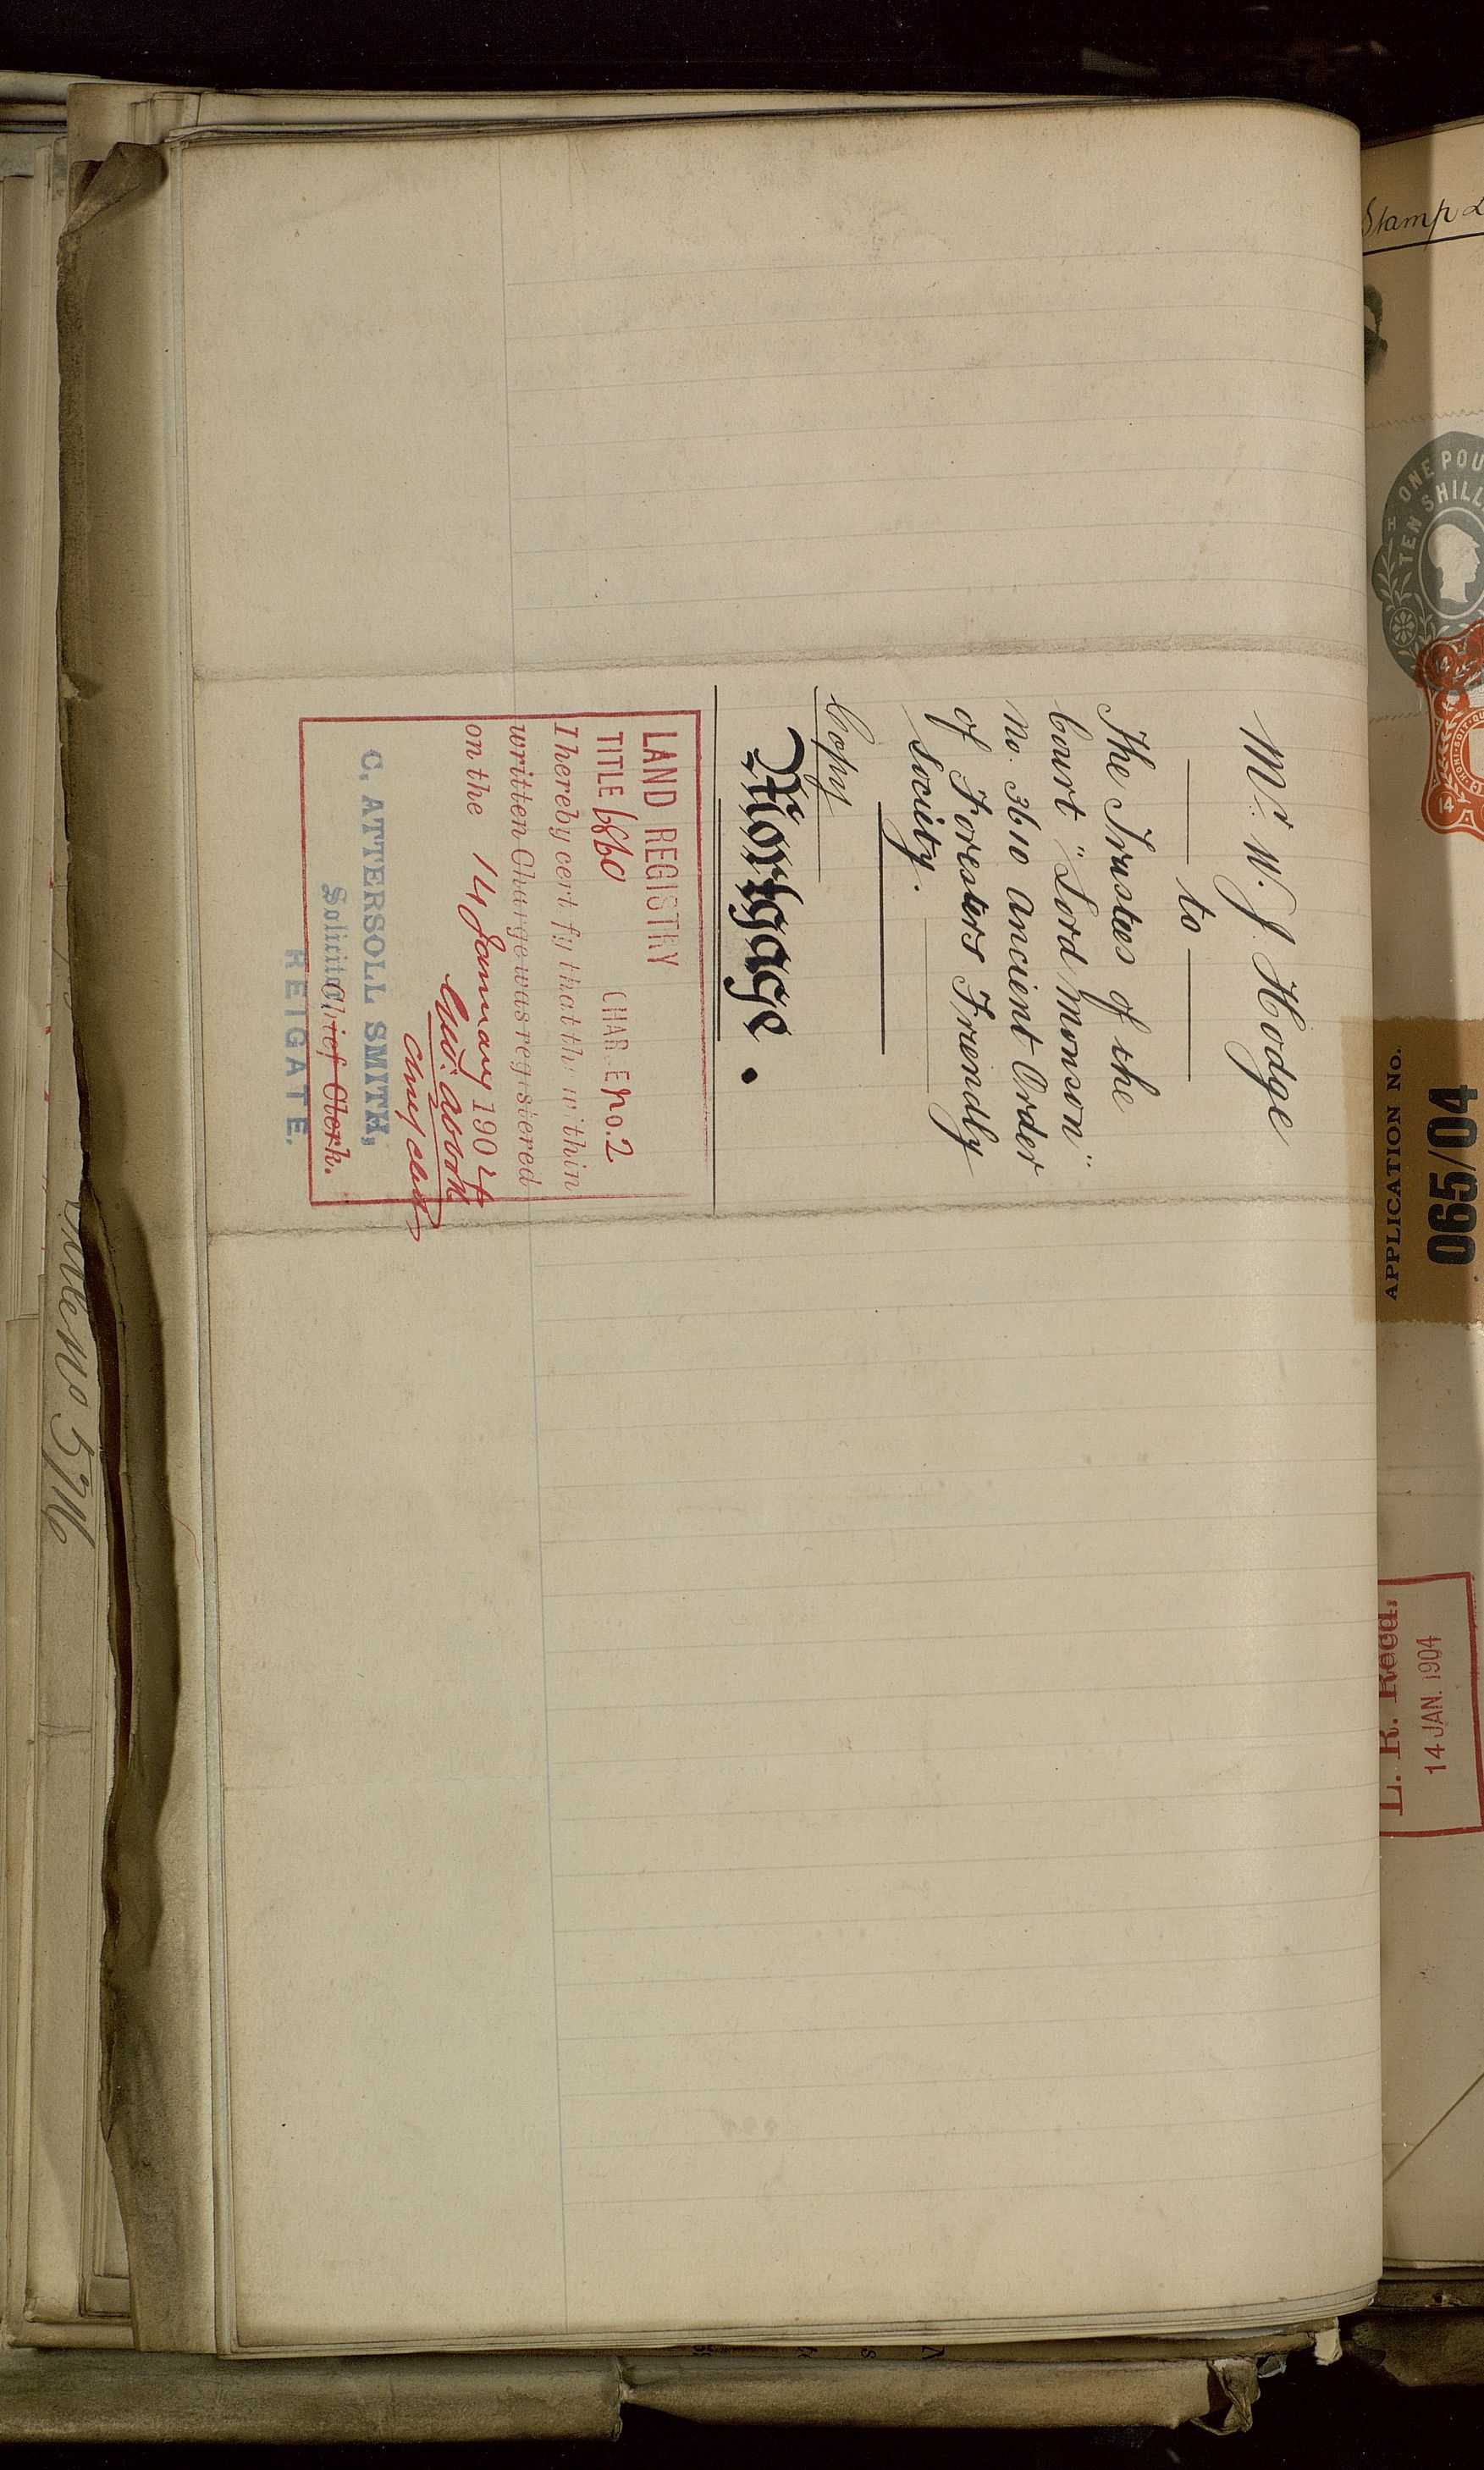 Mr. W. J. Hodge
to
The Trustees of the
Court "Lord Monson"
No. 3610 Ancient Order
of Foresters Friendly
Society.
Copy
Mortgage.
LAND REGISTRY
TITLE 6860 CHARGE No. 2
I hereby certify that the within
written Charge was registered
on the 14 January 1904
Chief Clerk
Chief Clerk.
C. ATTERSOLL SMITH,
Solicitor
REIGATE.
Stamp
ONE POU
TEN SHILL
14
14
APPLICATION No.
065/04
L. R. Recd.
14 JAN. 1904
No 5716